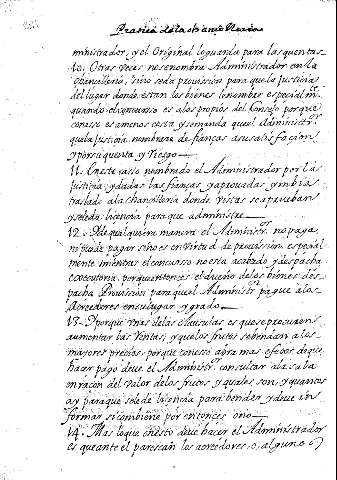 Practica de la Chancilleria
ministrador, y el Original le guarda para las quentas
10. Otras veces no se nombra Administrador en la
Chancilleria, sino se da provision para que la Justicia
del lugar donde estan los bienes le nombre especialm.te
quando el concurso es a los propios del Consejo porque
con esso es a menos costa y se manda que al Administr.or
que la Justicia nombrare de fianças a su satisfacion
y por su quenta, y riesgo
11. En este casso nombrado el Administrador por la
Justicia, y dadas las fianças y aprovadas, y embia
traslado a la chancilleria donde vistas se aprueban
y se le da licencia para que administre
12. De qualquiera manera el Administr.or no paga
ni puede pagar sino es en virtud de provission especial
mente mientras el concurso no esta acabado y despacha
executoria, porque entonces el dueño de los bienes des-
pacha Provission para que el Administr.or pague a los
Acreedores en su lugar y grado
13. Y porque una de las clausulas es que se procuren
aumentar las rentas, y que los frutos se bendan a los
mayores precios, porque con esso abra mas efectos de que
hacer pago deve el Administr.or consultar a la sala
en raçon del valor de los frutos y quales son, y quantos
ay para que se le de licencia para bender, y deve in-
formar si combiene por entonces o no
14. Mas lo que en esto deve hacer el Administrador
es que ante el parescan los acreedores, o, alguno